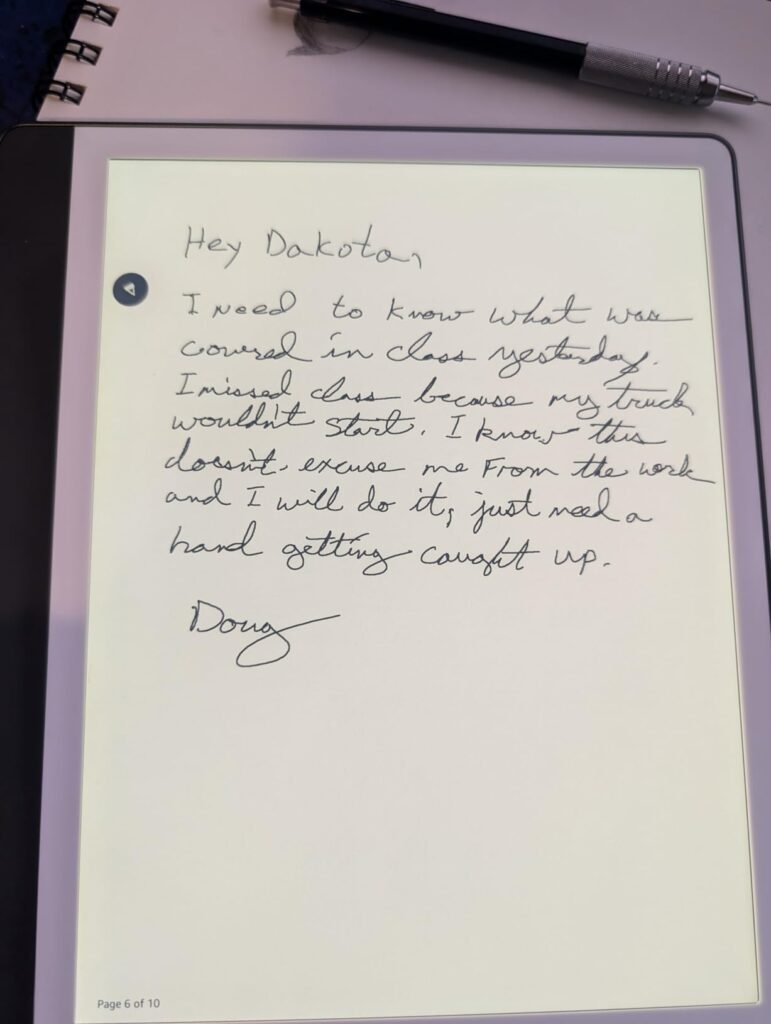 Hey Dakota,
I need to know what was
covered in class yesterday.
I missed class because my truck
wouldn't start. I know this
doesn't excuse me From the work
and I will do it, just need a
hand getting caught up.
Doug
Page 6 of 10